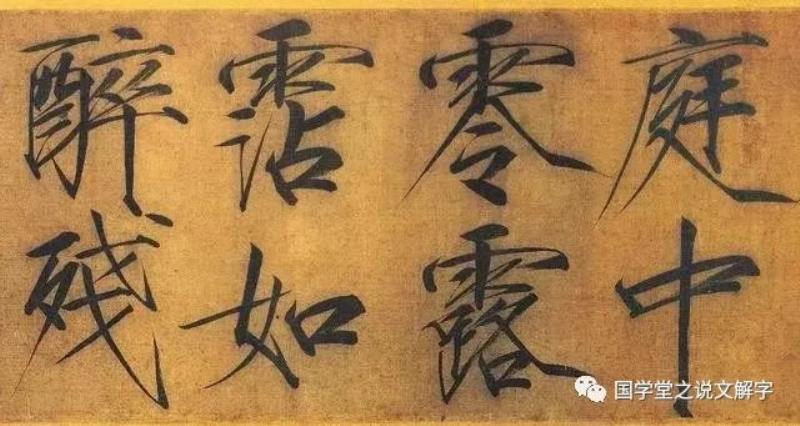 庭中
零露
霑如
醉殘
国学堂之说文解字